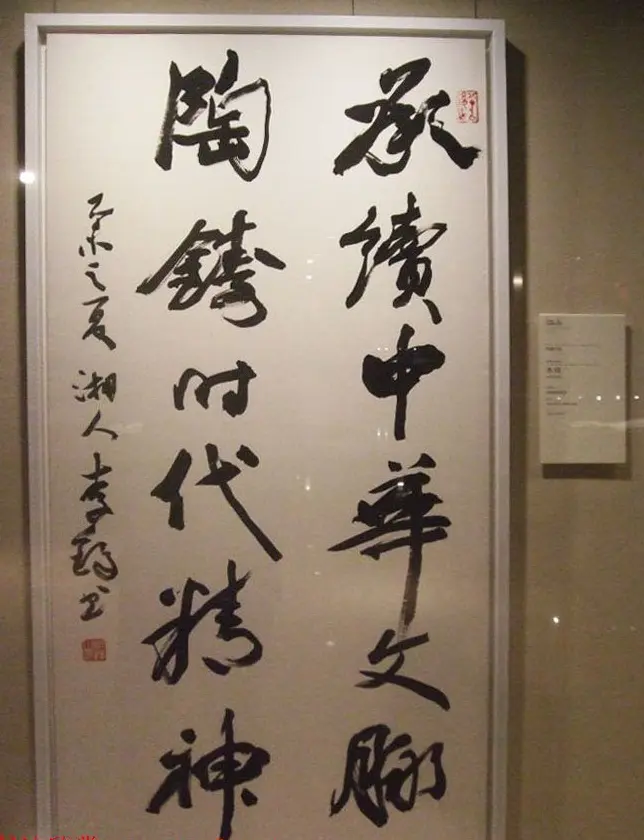 承續中華文脈
陶鑄时代精神
乙未之夏 湘人李鐸书